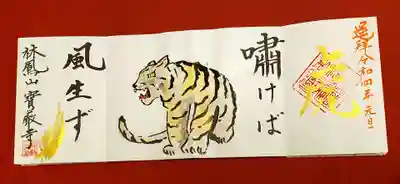 遥拝令和四年元旦
虎
嘯けば
風生ず
林鳳山寳厳寺